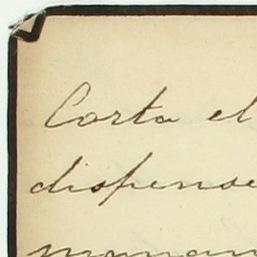 Corta el
dispense